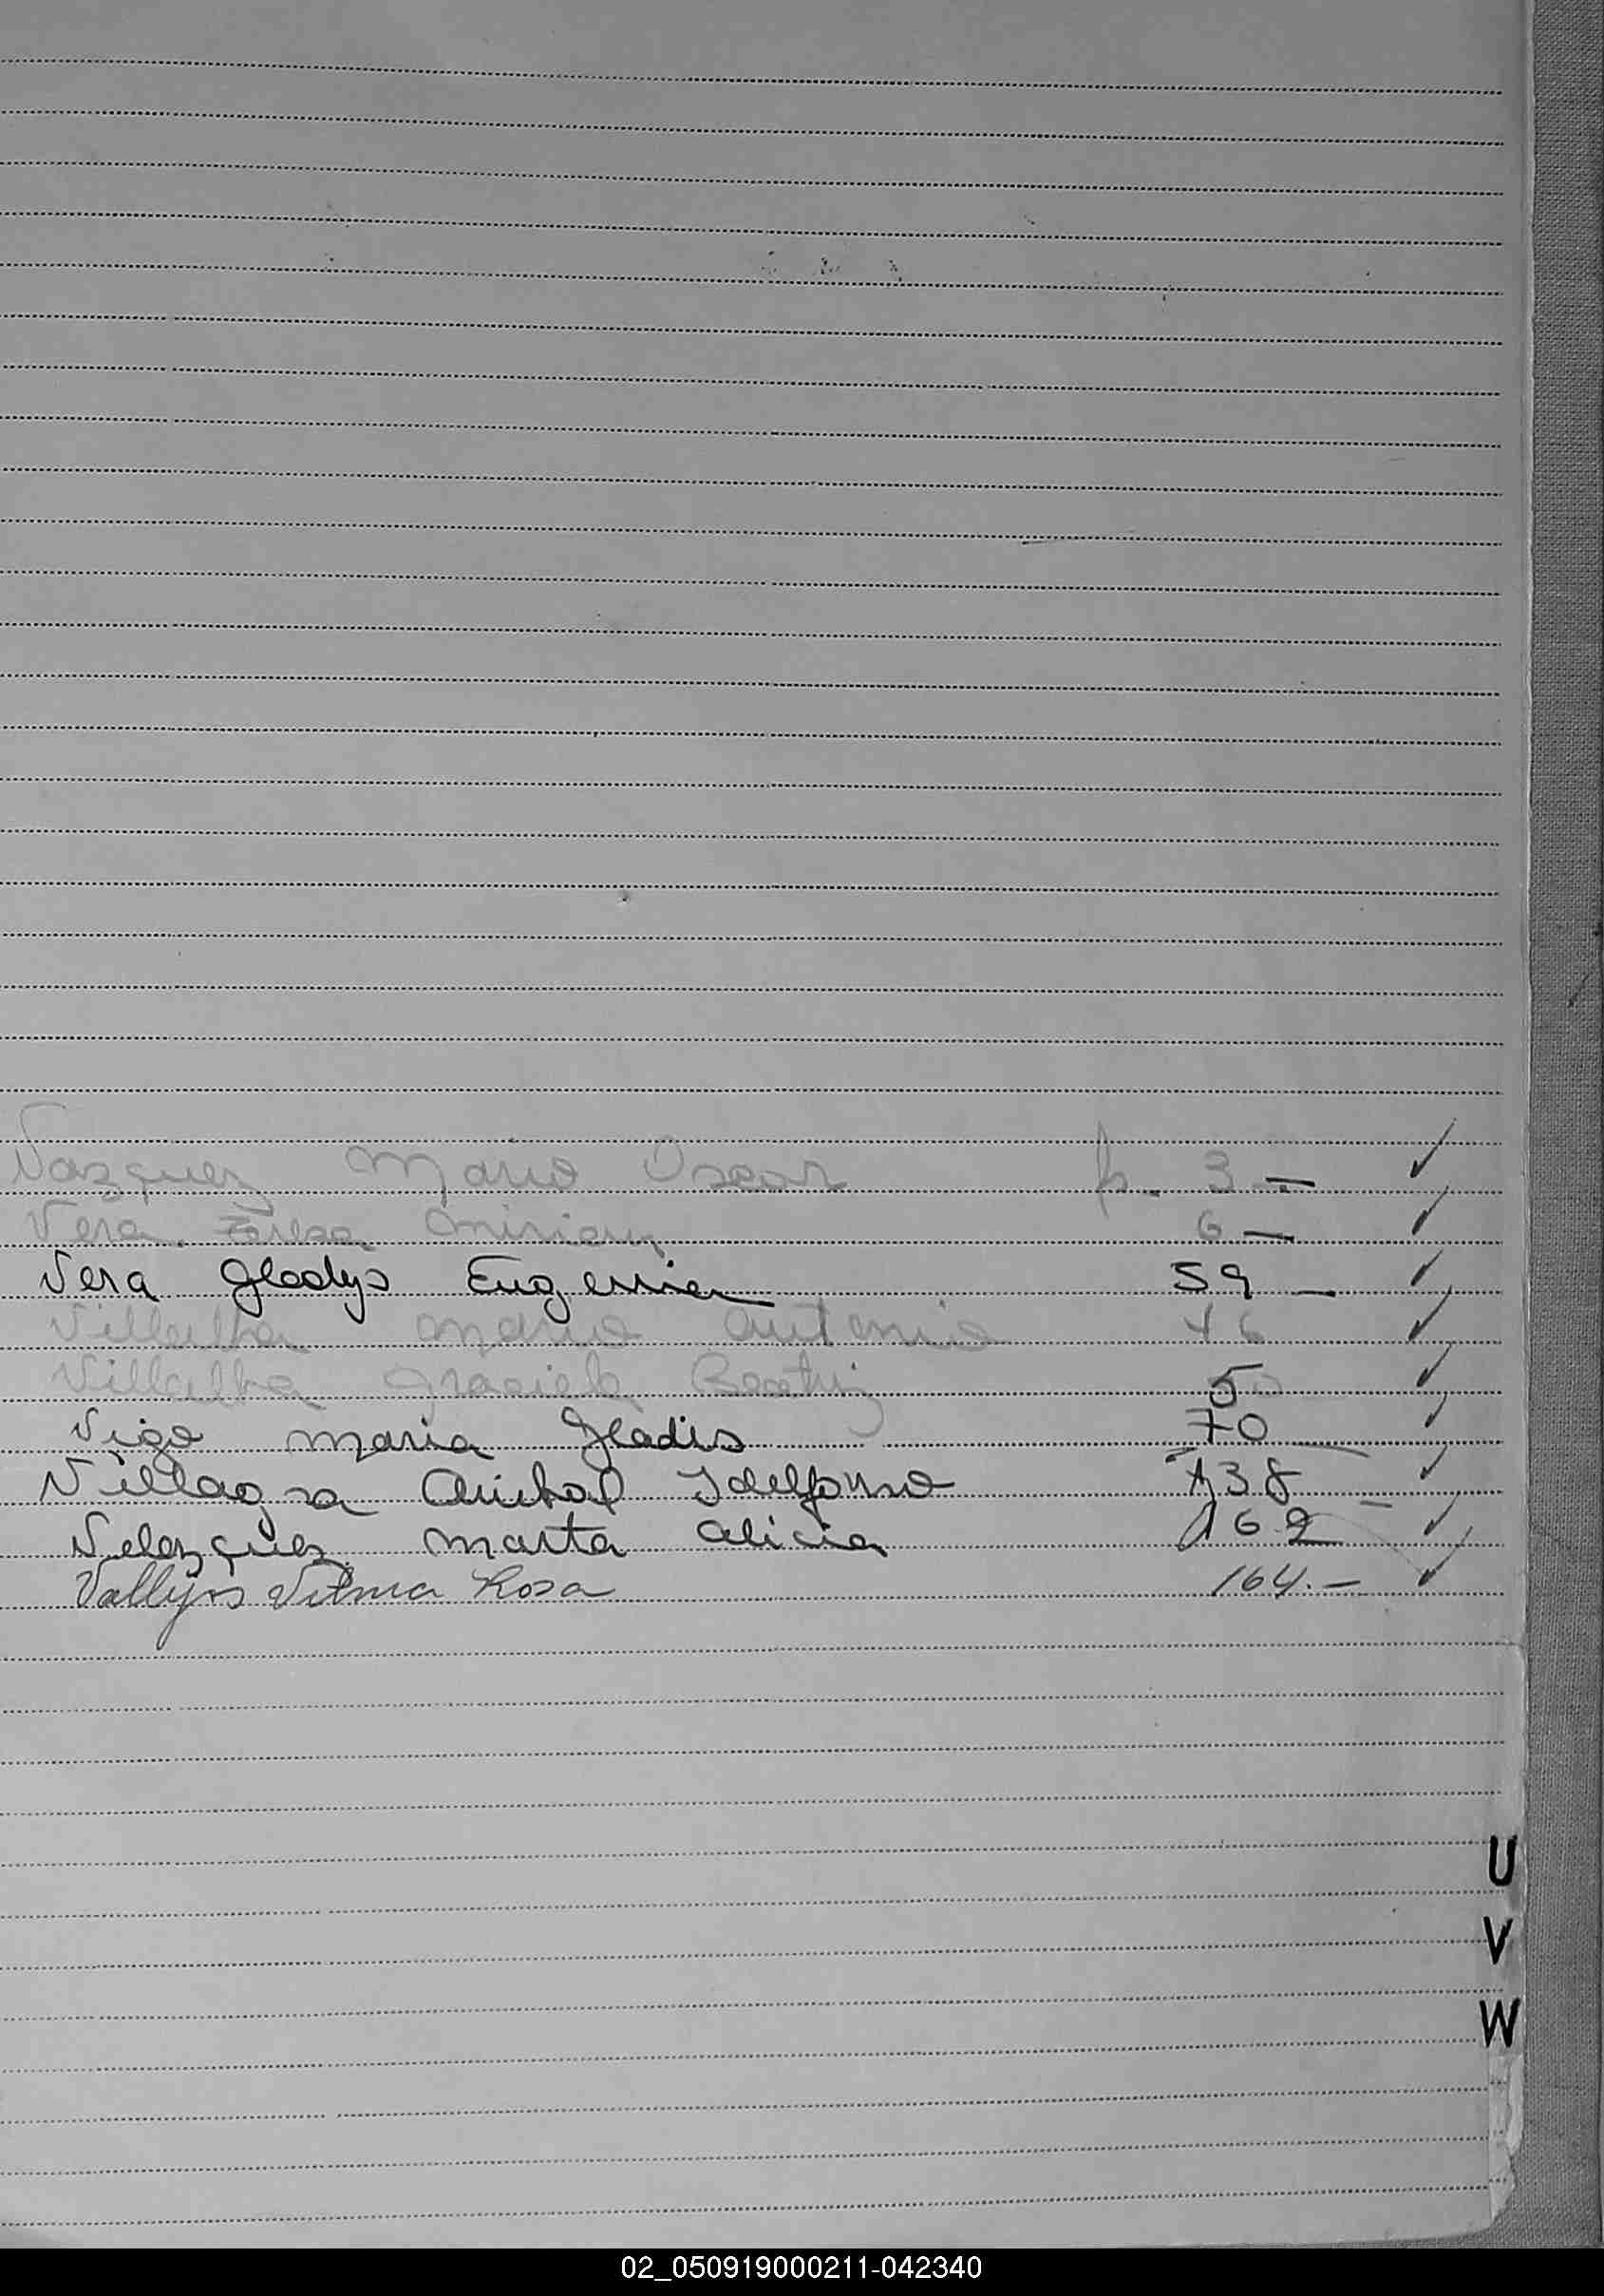 Vazquez Mario Oscar p. 3 — ✓
Vera Miriam 6 — ✓
Vera Gladys Eugenia 59 — ✓
Villalba Mario Antonio 46 ✓
Villalba Graciela Beatriz 50 ✓
Vigo Maria Gladis 70 — ✓
Villagra Anibal Idelfonso 138 — ✓
Velazquez Marta Alicia 162 ✓
Vilma Rosa 164.— ✓
U
V
W
02_050919000211-042340